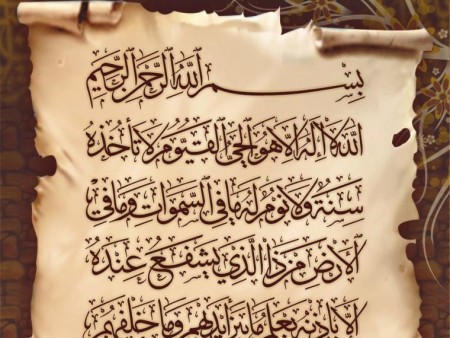 بِسْمِ اللهِ الرَّحْمٰنِ الرَّحِيْمِ
اللهُ لَا إِلٰهَ إِلَّا هُوَ الْحَيُّ الْقَيُّوْمُ لَا تَأْخُذُهُ
سِنَةٌ وَلَا نَوْمٌ لَهُ مَا فِي السَّمٰوَاتِ وَمَا فِي
الْأَرْضِ مَنْ ذَا الَّذِي يَشْفَعُ عِنْدَهُ
إِلَّا بِإِذْنِهِ يَعْلَمُ مَا بَيْنَ أَيْدِيهِمْ وَمَا خَلْفَهُمْ